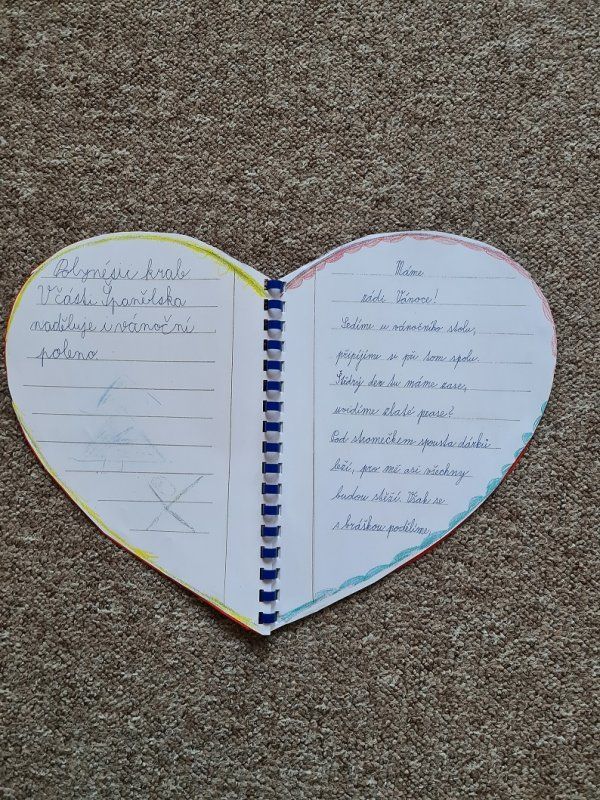 Polynésie krab
V části Španělska
naděluje i vánoční
poleno
Máme
rádi Vánoce!
Sedíme u vánočního stolu,
připíjíme si při tom spolu.
Štědrý den tu máme zase,
uvidíme zlaté prase?
Pod stromečkem spousta dárků
leží, pro mě asi všechny
budou stěží. Však se
s bráškou podělíme,